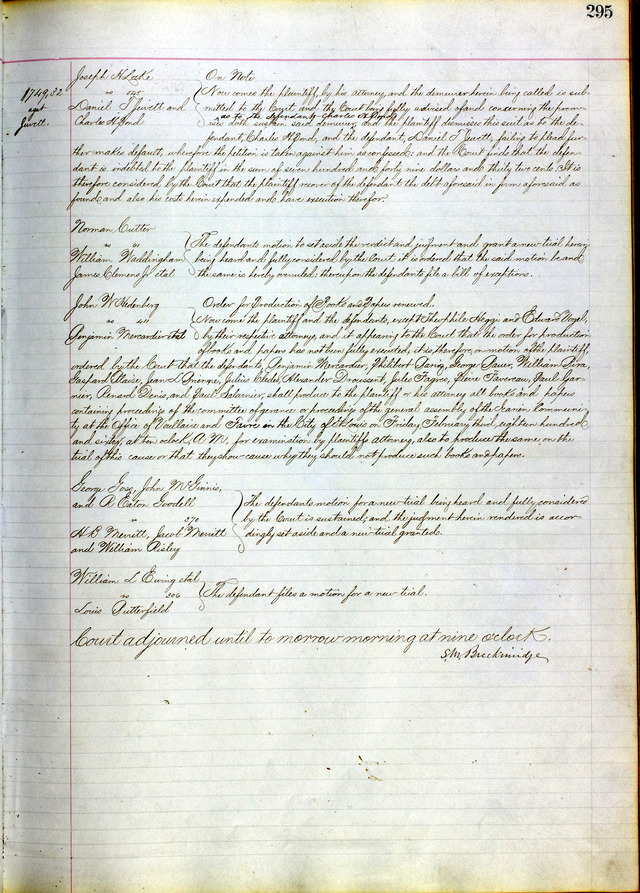 295
Joseph H Locke On Note
$749.32 Now comes the plaintiff by his attorney, and the demurrer herein being called is sub-
vs 545
agst Daniel T Jewett and mitted to the Court and the Court being fully advised of and concerning the prem-
as to the defendant Charles H
Jewett. Charles H ises doth sustain said demurrer, and the plaintiff dismisses this suit as to the de-
fendant, Charles H and the defendant, Daniel T Jewett, failing to plead fur-
ther makes default, wherefore the petition is taken against him as confessed; and the Court finds that the defen-
dant is indebted to the plaintiff in the sum of seven hundred and forty nine dollars and thirty two cents. It is
therefore considered by the Court that the plaintiff recover of the defendant the debt aforesaid in form aforesaid as
found and also his costs herein expended and have execution therefor.
Norman Cutter
The defendants motion to set aside the verdict and judgment and grant a new trial herein
vs
William Waddingham being heard and fully considered by the Court it is ordered that the said motion be and
James Clemens Jr et al the same is hereby overruled; thereupon the defendants file a bill of exceptions.
John W Order for Production of Books and Papers renewed.
vs Now come the plaintiff and the defendants, except Theophile and Edward Vogel,
Benjamin Mercardier et al by their respective attorneys, and it appearing to the Court that the order for production
of books and papers has not been fully executed, it is therefore, on motion of the plaintiff,
ordered by the Court that the defendants, Benjamin Mercardier, Philibert George Sauer, William
Jean L Julius Alexander Droussent, Jules Pierre Paul Gar-
nier, Renard Denis, and Paul shall produce to the plaintiff or his attorney all books and papers
containing proceedings of the committee of gerance or proceedings of the general assembly of the Icarian Communi-
ty at the Office of Voullaire and in the City of St Louis on Friday, February third, eighteen hundred
and sixty, at ten oclock, A. M., for examination by plaintiff attorney, also to produce the same on the
trial of this cause or that they show cause why they should not produce such books and papers.
George Goss, John McGinnis,
and R Eaton Goodell The defendants motion for a new trial being heard and fully considered
vs 570 by the Court is sustained; and the judgment herein rendered is accor-
H B Merritt, Jacob Merritt dingly set aside and a new trial granted.
and William Risley
William L Ewing et al
vs 506 The defendant files a motion for a new trial.
Louis Butterfield
Court adjourned until to morrow morning at nine oclock.
S. M. Breckinridge